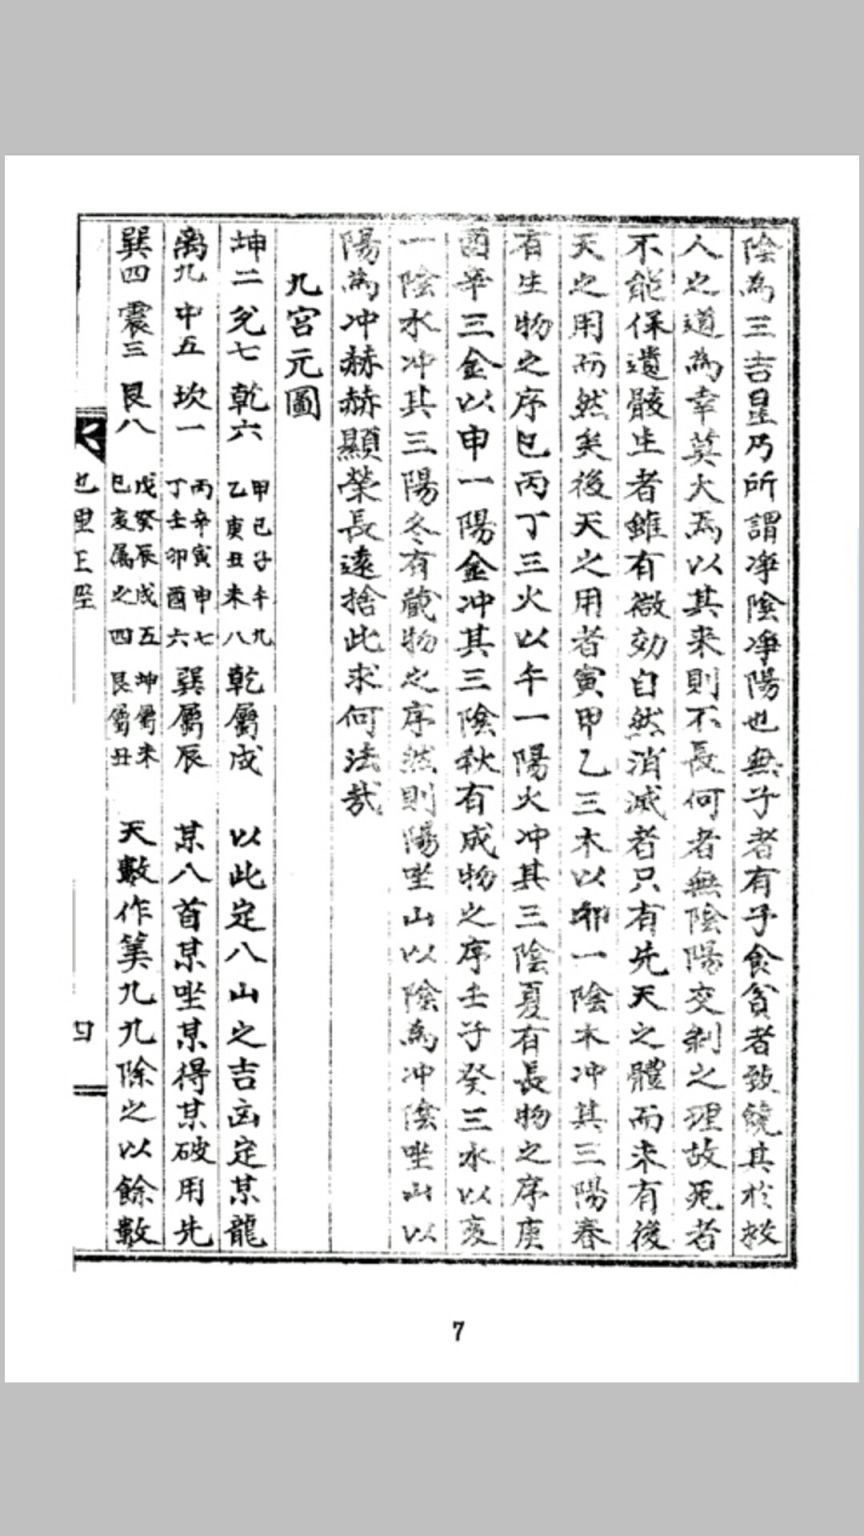 陰為三吉星乃所謂凈陰凈陽也無子者有子食貧者致饒其於救
人之道為幸莫大焉以其来則不長何者無陰陽交剝之理故死者
不能保遺骸生者雖有微効自然消滅者只有先天之體而未有後
天之用而然矣後天之用者寅甲乙三木以卯一陰木冲其三陽春
有生物之序巳丙丁三火以午一陽火冲其三陰夏有長物之序庚
酉辛三金以申一陽金冲其三陰秋有成物之序壬子癸三水以亥
一陰水冲其三陽冬有藏物之序然則陽坐山以陰為冲陰坐山以
陽為冲赫赫顯榮長遠捨此求何法哉
九宮元圖
坤二 兌七 乾六 甲己子午九 乙庚丑未八 乾屬戌 以此定八山之吉凶定某龍
离九 中五 坎一 丙辛寅申七 丁壬卯酉六 巽屬辰 某八首某坐某得某破用先
巽四 震三 艮八 戊癸辰戌五 巳亥属之四 坤屬未 艮屬丑 天數作筭九九除之以餘數
地理正經
四
7